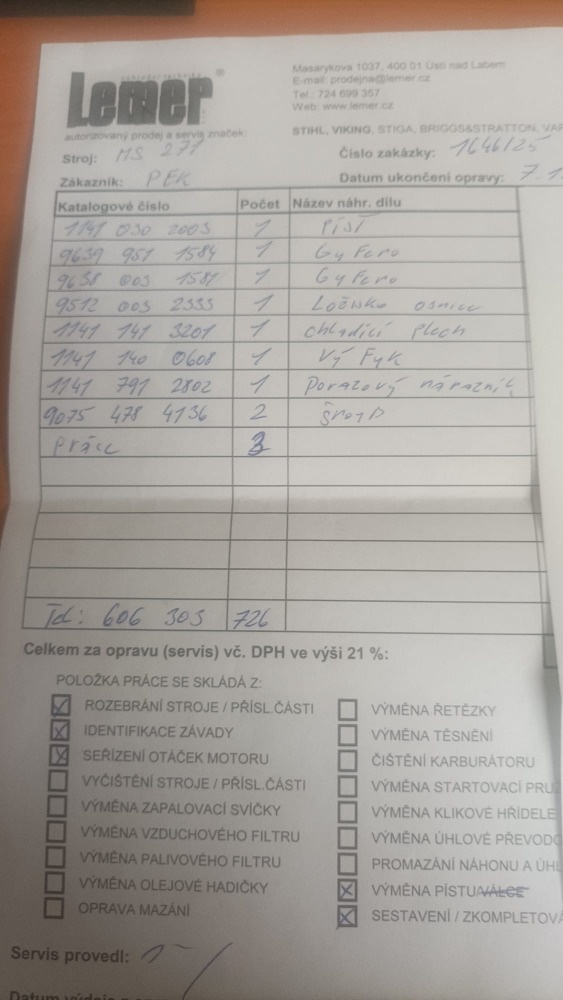 Lemer®
Masarykova 1037, 400 01 Ústí nad Labem
E-mail: prodejna@lemer.cz
Tel.: 724 699 357
Web: www.lemer.cz
autorizovaný prodej a servis značek:
STIHL, VIKING, STIGA, BRIGGS&STRATTON, VAR
Stroj: MS 271
Číslo zakázky: 1646/25
Zákazník: PEK
Datum ukončení opravy: 7.1
Katalogové číslo Počet Název náhr. dílu
1141 030 2003 1 Píst
9639 951 1584 1 Gyfero
9638 003 1581 1 Gyfero
9512 003 2333 1 Ložisko osnice
1141 141 3201 1 chladící plech
1141 140 0608 1 Výfyk
1141 791 2802 1 Porazový nárazník
9075 478 4136 2 šroub
Práce 3
Tel: 606 303 726
Celkem za opravu (servis) vč. DPH ve výši 21 %:
POLOŽKA PRÁCE SE SKLÁDÁ Z:
ROZEBRÁNÍ STROJE / PŘÍSL.ČÁSTI
IDENTIFIKACE ZÁVADY
SEŘÍZENÍ OTÁČEK MOTORU
VYČIŠTĚNÍ STROJE / PŘÍSL.ČÁSTI
VÝMĚNA ZAPALOVACÍ SVÍČKY
VÝMĚNA VZDUCHOVÉHO FILTRU
VÝMĚNA PALIVOVÉHO FILTRU
VÝMĚNA OLEJOVÉ HADIČKY
OPRAVA MAZÁNÍ
VÝMĚNA ŘETĚZKY
VÝMĚNA TĚSNĚNÍ
ČIŠTĚNÍ KARBURÁTORU
VÝMĚNA STARTOVACÍ PRUŽ
VÝMĚNA KLIKOVÉ HŘÍDELE
VÝMĚNA ÚHLOVÉ PŘEVODO
PROMAZÁNÍ NÁHONU A ÚHL
VÝMĚNA PÍSTU/VÁLCE
SESTAVENÍ / ZKOMPLETOVÁ
Servis provedl: